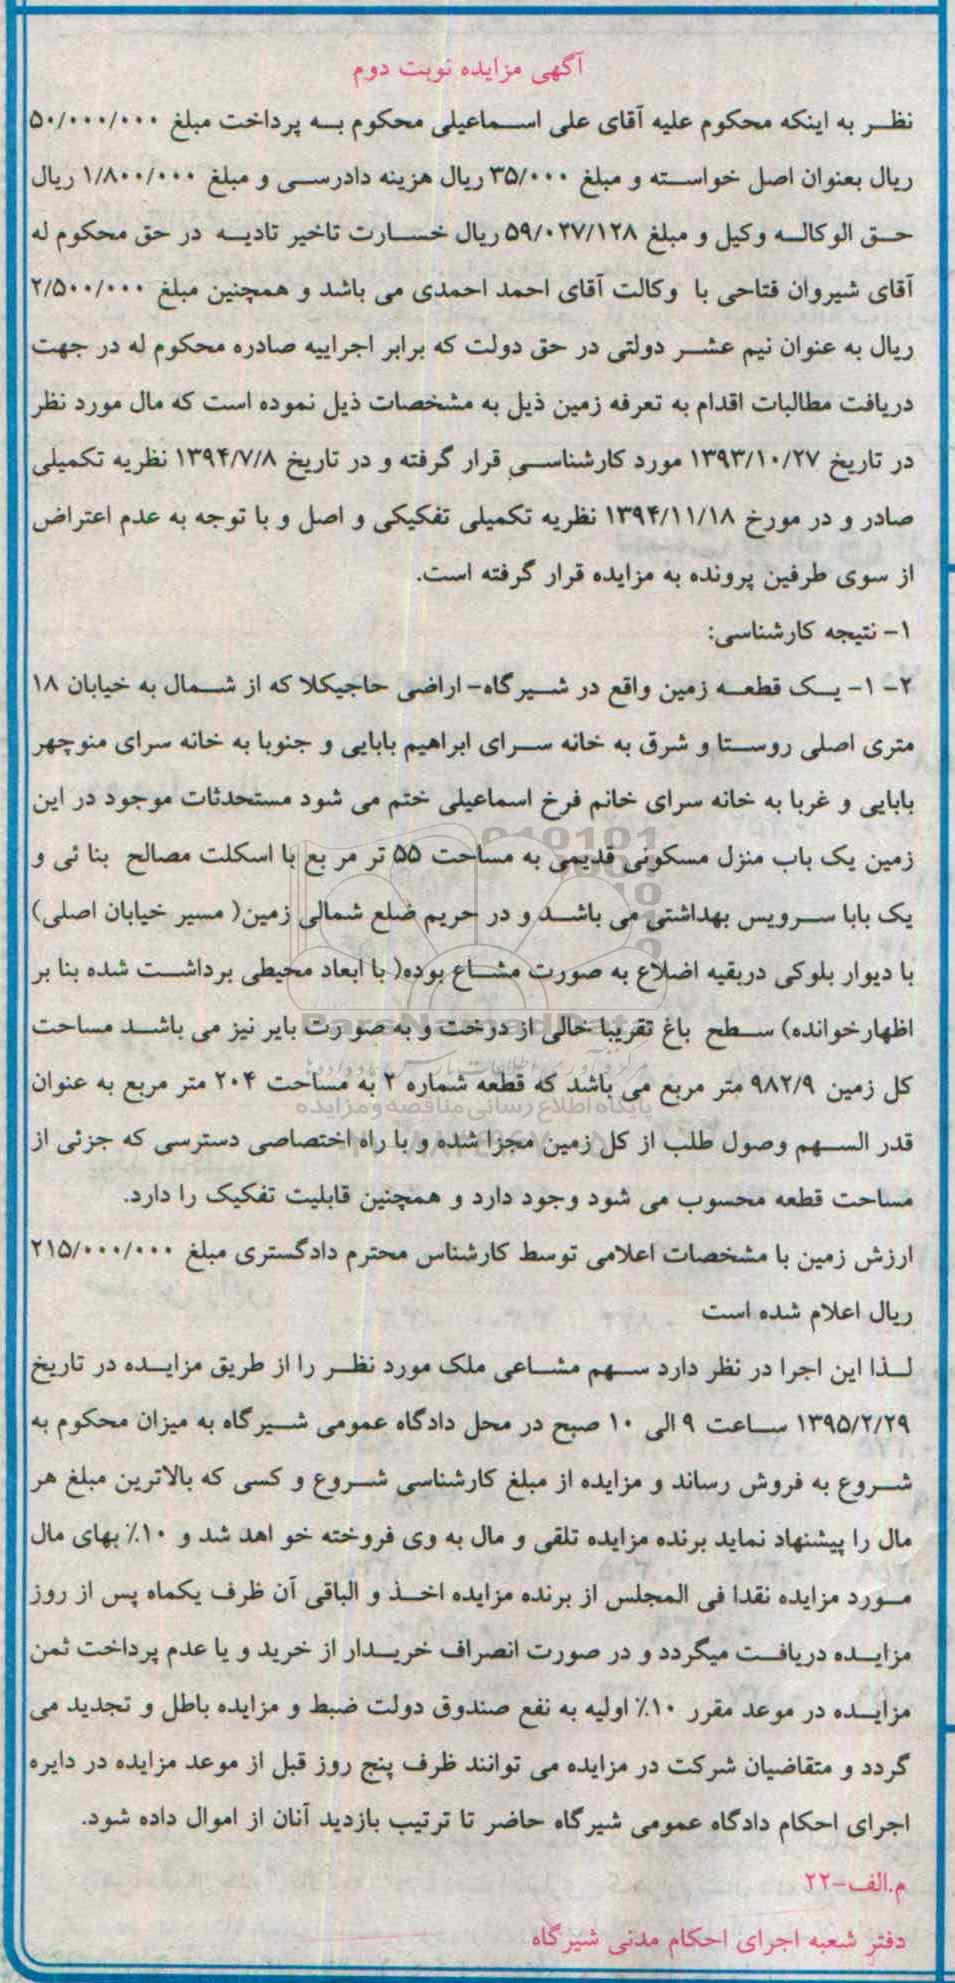 آگهی مزایده نوبت دوم
نظر به اینکه محکوم علیه آقای علی اسماعیلی محکوم به پرداخت مبلغ ۵۰/۰۰۰/۰۰۰
ریال بعنوان اصل خواسته و مبلغ ۳۵/۰۰۰ ریال هزینه دادرسی و مبلغ ۱/۸۰۰/۰۰۰ ریال
حق الوکاله وکیل و مبلغ ۵۹/۰۲۷/۱۲۸ ریال خسارت تاخیر تادیه در حق محکوم له
آقای شیروان فتاحی با وکالت آقای احمد احمدی می باشد و همچنین مبلغ ۲/۵۰۰/۰۰۰
ریال به عنوان نیم عشر دولتی در حق دولت که برابر اجراییه صادره محکوم له در جهت
دریافت مطالبات اقدام به تعرفه زمین ذیل به مشخصات ذیل نموده است که مال مورد نظر
در تاریخ ۱۳۹۳/۱۰/۲۷ مورد کارشناسی قرار گرفته و در تاریخ ۱۳۹۴/۷/۸ نظریه تکمیلی
صادر و در مورخ ۱۳۹۴/۱۱/۱۸ نظریه تکمیلی تفکیکی و اصل و با توجه به عدم اعتراض
از سوی طرفین پرونده به مزایده قرار گرفته است.
۱- نتیجه کارشناسی:
۲- ۱- یک قطعه زمین واقع در شیرگاه- اراضی حاجیکلا که از شمال به خیابان ۱۸
متری اصلی روستا و شرق به خانه سرای ابراهیم بابایی و جنوبا به خانه سرای منوچهر
بابایی و غربا به خانه سرای خانم فرخ اسماعیلی ختم می شود مستحدثات موجود در این
زمین یک باب منزل مسکونی قدیمی به مساحت ۵۵ تر مر بع با اسکلت مصالح بنا ئی و
یک بابا سرویس بهداشتی می باشد و در حریم ضلع شمالی زمین( مسیر خیابان اصلی)
با دیوار بلوکی دربقیه اضلاع به صورت مشاع بوده( با ابعاد محیطی برداشت شده بنا بر
اظهارخوانده) سطح باغ تقریبا خالی از درخت و به صو رت بایر نیز می باشد مساحت
ParsNamadData
کل زمین ۹۸۲/۹ متر مربع می باشد که قطعه شماره ۲ به مساحت ۲۰۴ متر مربع به عنوان
پایگاه اطلاع رسانی مناقصه و مزایده
قدر السهم وصول طلب از کل زمین مجزا شده و با راه اختصاصی دسترسی که جزئی از
مساحت قطعه محسوب می شود وجود دارد و همچنین قابلیت تفکیک را دارد.
ارزش زمین با مشخصات اعلامی توسط کارشناس محترم دادگستری مبلغ ۲۱۵/۰۰۰/۰۰۰
ریال اعلام شده است
لذا این اجرا در نظر دارد سهم مشاعی ملک مورد نظر را از طریق مزایده در تاریخ
۱۳۹۵/۲/۲۹ ساعت ۹ الی ۱۰ صبح در محل دادگاه عمومی شیرگاه به میزان محکوم به
شروع به فروش رساند و مزایده از مبلغ کارشناسی شروع و کسی که بالاترین مبلغ هر
مال را پیشنهاد نماید برنده مزایده تلقی و مال به وی فروخته خو اهد شد و ۱۰٪ بهای مال
مورد مزایده نقدا فی المجلس از برنده مزایده اخذ و الباقی آن ظرف یکماه پس از روز
مزایده دریافت میگردد و در صورت انصراف خریدار از خرید و یا عدم پرداخت ثمن
مزایده در موعد مقرر ۱۰٪ اولیه به نفع صندوق دولت ضبط و مزایده باطل و تجدید می
گردد و متقاضیان شرکت در مزایده می توانند ظرف پنج روز قبل از موعد مزایده در دایره
اجرای احکام دادگاه عمومی شیرگاه حاضر تا ترتیب بازدید آنان از اموال داده شود.
م.الف-۲۲
دفتر شعبه اجرای احکام مدنی شیرگاه